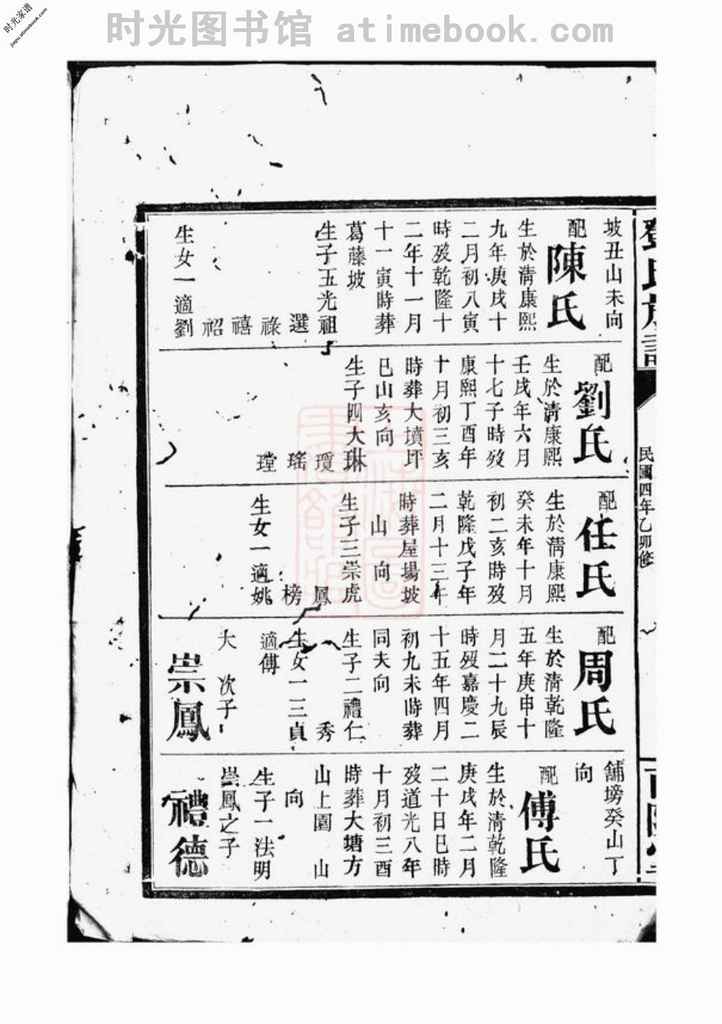 时光图书馆 atimebook.com
时光家谱
jiapu.atimebook.com
鄧氏族譜
民國四年乙卯修
南陽堂
坡丑山未向
配
陳氏
生於清康熙
九年庚戌十
二月初八寅
時歿乾隆十
二年十一月
十一寅時葬
葛藤坡
生子五光祖
選
祿
禧
祒
生女一適劉
配
劉氏
生於清康熙
壬戌年六月
十七子時歿
康熙丁酉年
十月初三亥
時葬大墳坪
巳山亥向
生子四大琳
瓊
瑤
瑝
配
任氏
生於清康熙
癸未年十月
初二亥時歿
乾隆戊子年
二月十三年
時葬屋場坡
山 向
生子三崇虎
鳳
榜
生女一適姚
配
周氏
生於清乾隆
五年庚申十
月二十九辰
時歿嘉慶二
十五年四月
初九未時葬
同夫向
生子二禮仁
秀
生女一三貞
適傅
大 次子
崇鳳
舖塝癸山丁
向
配
傅氏
生於清乾隆
庚戌年二月
二十日巳時
歿道光八年
十月初三酉
時葬大塘方
山上園 山
向
生子一法明
崇鳳之子
禮德